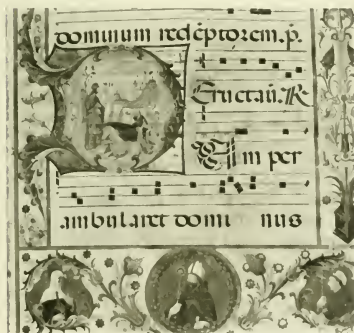 dominum redẽptorem. p̄.
Eructaū. ℟
DUm per
ambularet domi nus